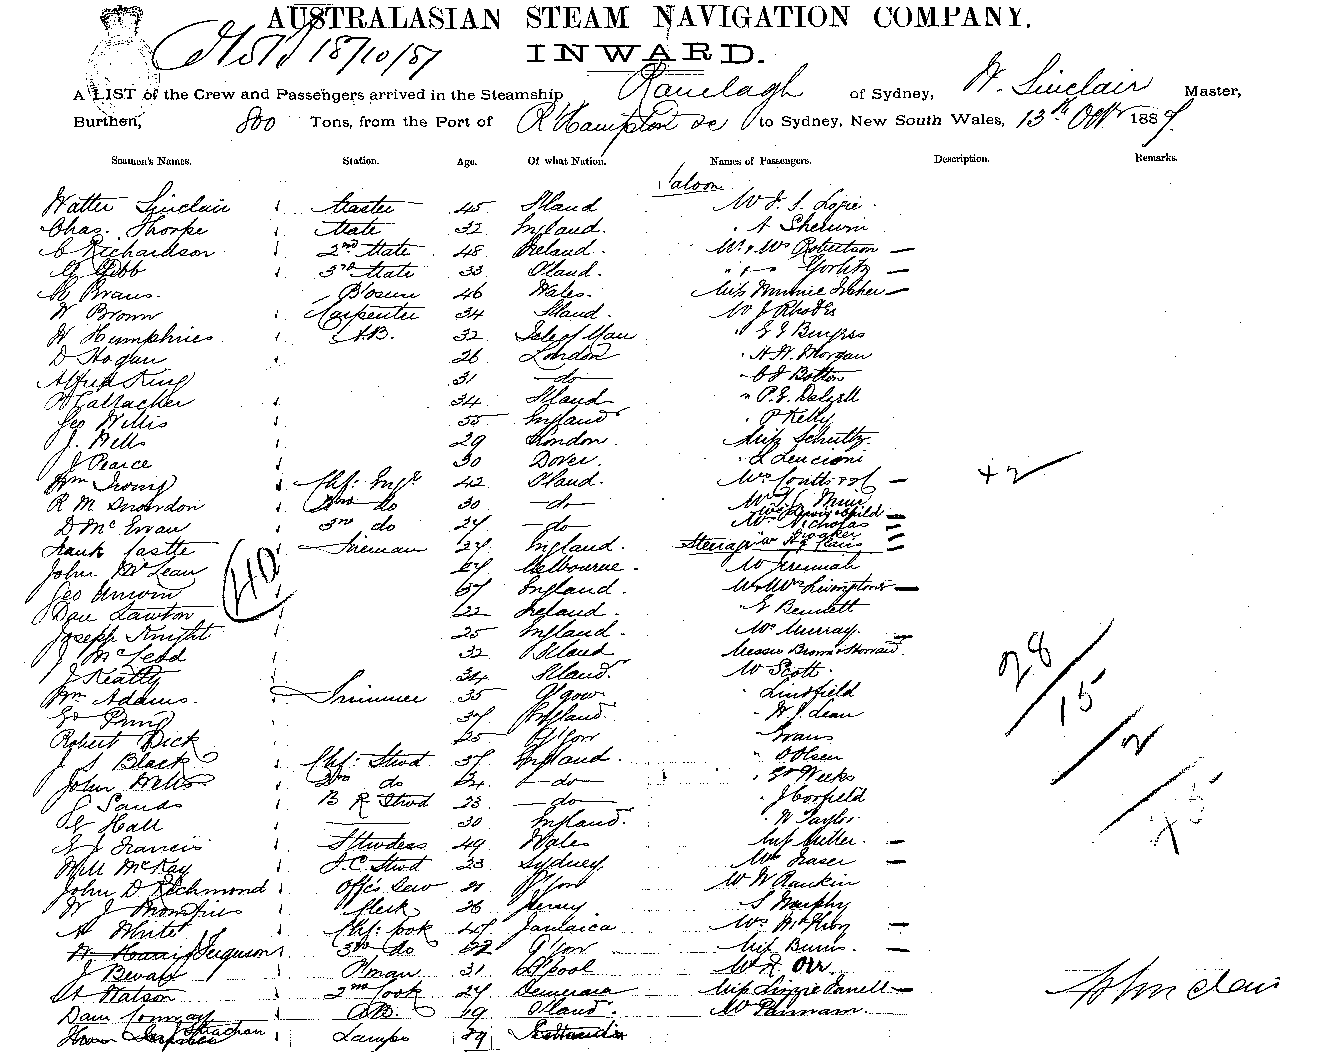 AUSTRALASIAN STEAM NAVIGATION COMPANY.
18/10/87
INWARD.
A LIST of the Crew and Passengers arrived in the Steamship Ranelagh of Sydney, W. Sinclair Master,
Burthen, 800 Tons, from the Port of R'Hampton &c to Sydney, New South Wales, 13th Octr 1887.
Seamen's Names. Station. Age. Of what Nation. Names of Passengers. Description. Remarks.
Saloon
Walter Sinclair Master 45 S'land Mr J. S. Logie
Chas. Thorpe Mate 32 England. " A Sherwin
C Richardson 2nd Mate 48 Ireland. Mr & Mrs Robertson —
G Gibb 3rd Mate 33 S'land. " " Gorlitz —
Evans. B'osun 46 Wales. Miss Minnie Fisher —
W Brown Carpenter 34 S'land. Mr J Rhodes
W Humphries A.B. 32 Isle of Man " E E Burgess
D Hogan 26 London " H W. Morgan
Alfred King 31 — do — " C J Bolton
Gallacher 34 S'land " P. E. Dalzell
Geo Willis 55 England " P Kelly
J. Wells 29 London. Miss Schultz.
J Pearce 30 Dover. " L Leucioni
Wm Irving Chf: Engr 42 S'land. Mrs Coutts & Cd — 42
R M Snowdon 2nd do 30 — do Mr T C Muir
D McEwan 3rd do 27 — do — Mrs Nicholas —
Frank Castle Fireman 27 England. Steerage
John McLean 27 Melbourne. Mr Jeremiah
Geo Unwin 37 England. Mr & Mrs Livingstone —
Dan Lawton 22 Ireland. " E Bennett
40
Joseph Knight 25 England. Mrs Murray. —
J McLeod 32 S'land Messrs Brown & Howard. 28
J Keatty 34 S'land. Mr Scott 15
Wm Adams. Trimmer 35 G'gow " Lindfield
37 England " W J Dean 2
Robert Dick 25 G'gow " Evans
J S Black Chf: Stwd 37 England. " O Olsen
John Wells 2nd do 24 — do — " Weeks
Sands B R Stwd 23 — do — " J Corfield
Hall 30 England. " W Taylor
Francis S'tewdess 49 Wales Miss Miller. —
Will McKay F. C. Stwd 23 Sydney. Mrs Fraser —
John D Richmond Offc's Serv 21 G'gow Mr W Rankin
W J Clerk 26 Jersey " S Murphy
A White Chf: Cook 47 Jamaica Mrs —
W Harris Ferguson 3rd do 22 G'gow Miss Burns. —
J Bevan P'man 31 L'pool Mr R Orr
A Watson 2nd Cook 27 Demerara Miss Lizzie Farrell —
Dan Conway O.B. 19 S'land. Mr Parnham.
Strachan Lamps 39 Scotland
W Sinclair